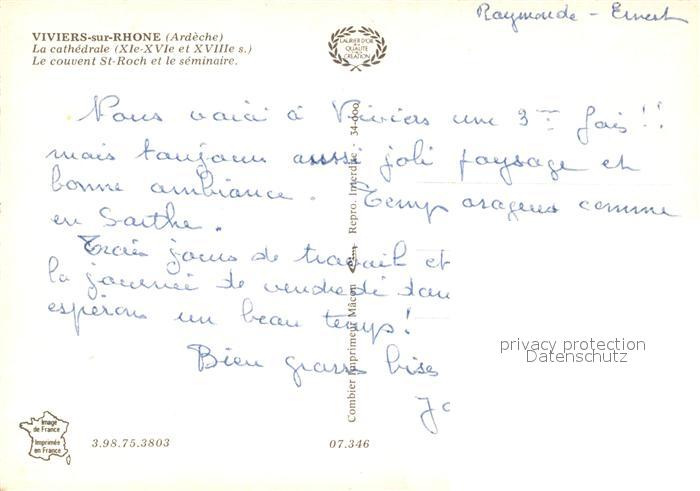 Raymonde - Ernest
VIVIERS-sur-RHONE (Ardèche)
La cathédrale (XIe-XVIe et XVIIIe s.)
Le couvent St-Roch et le séminaire.
LAURIER D'OR
DE LA
QUALITÉ
CREATION
Nous voici à Viviers une 3me fois !!
mais toujours aussi joli paysage et
bonne ambiance. Temps orageux comme
en Sarthe.
Trois jours de travail et
la journée de vendredi dan
espérons un beau temps!
Bien grosses bises
Combier Imprimeur Mâcon Repro. Interdite, 34-000
privacy protection
Datenschutz
Image
de France
Imprimée
en France
3.98.75.3803
07.346